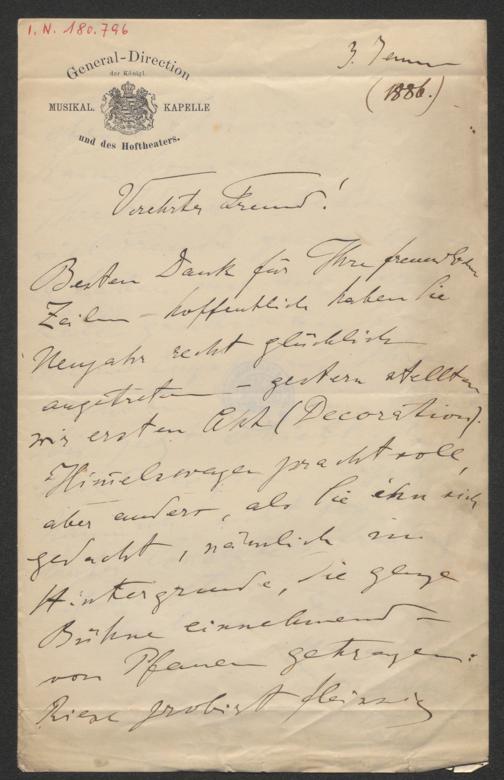 I. N. 180.796
General-Direction
der Königl.
MUSIKAL. KAPELLE
und des Hoftheaters.
3. Januar
(1886.)
Verehrter Freund!
Besten Dank für Ihre freundlichen
Zeilen – hoffentlich haben Sie
Neujahr recht glücklich
angetreten – gestern stellten
wir ersten Akt (Decoration).
Himelswagen prachtvoll,
aber anders, als Sie ihn sich
gedacht, nämlich im
Hintergrunde, die ganze
Bühne einnehmend –
von Pfauen getragen.
Riese probirt fleissig